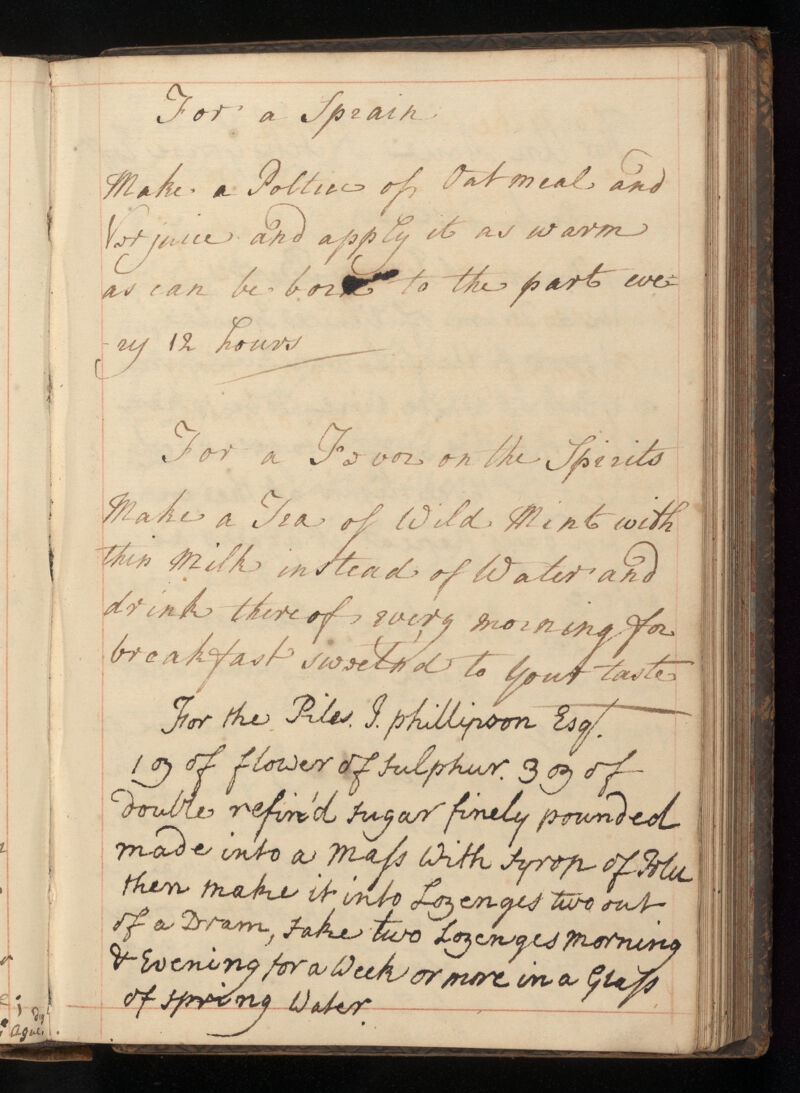 For a Sprain
Make a Poltice of Oatmeal and
Verjuice and apply it as warm
as can be born to the part eve=
-ry 12 hours
For a Fevor on the Spirits
Make a Tea of Wild Mint with
thin Milk instead of Water and
drink thereof every morning for
breakfast sweetnd to your taste
For the Piles. J. phillipson Esqr.
1 oz of flower of sulphur. 3 oz of
double refin'd sugar finely pounded
made into a Mass with syrop of Tolu
then make it into Lozenges two out
of a Dram, take two Lozenges morning
& Evening for a Week or more in a Glass
of spring Water.
Ague